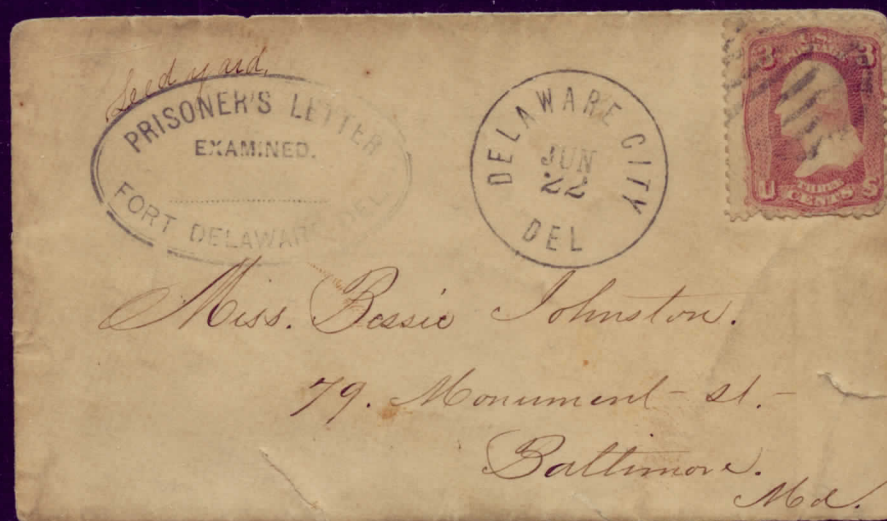 PRISONER'S LETTER
EXAMINED.
FORT DELAWARE DEL
DELAWARE CITY
JUN
22
DEL
3 U.S. POSTAGE 3
U THREE CENTS S
Miss. Bessie Johnston.
79. Monument st.
Baltimore.
Md.